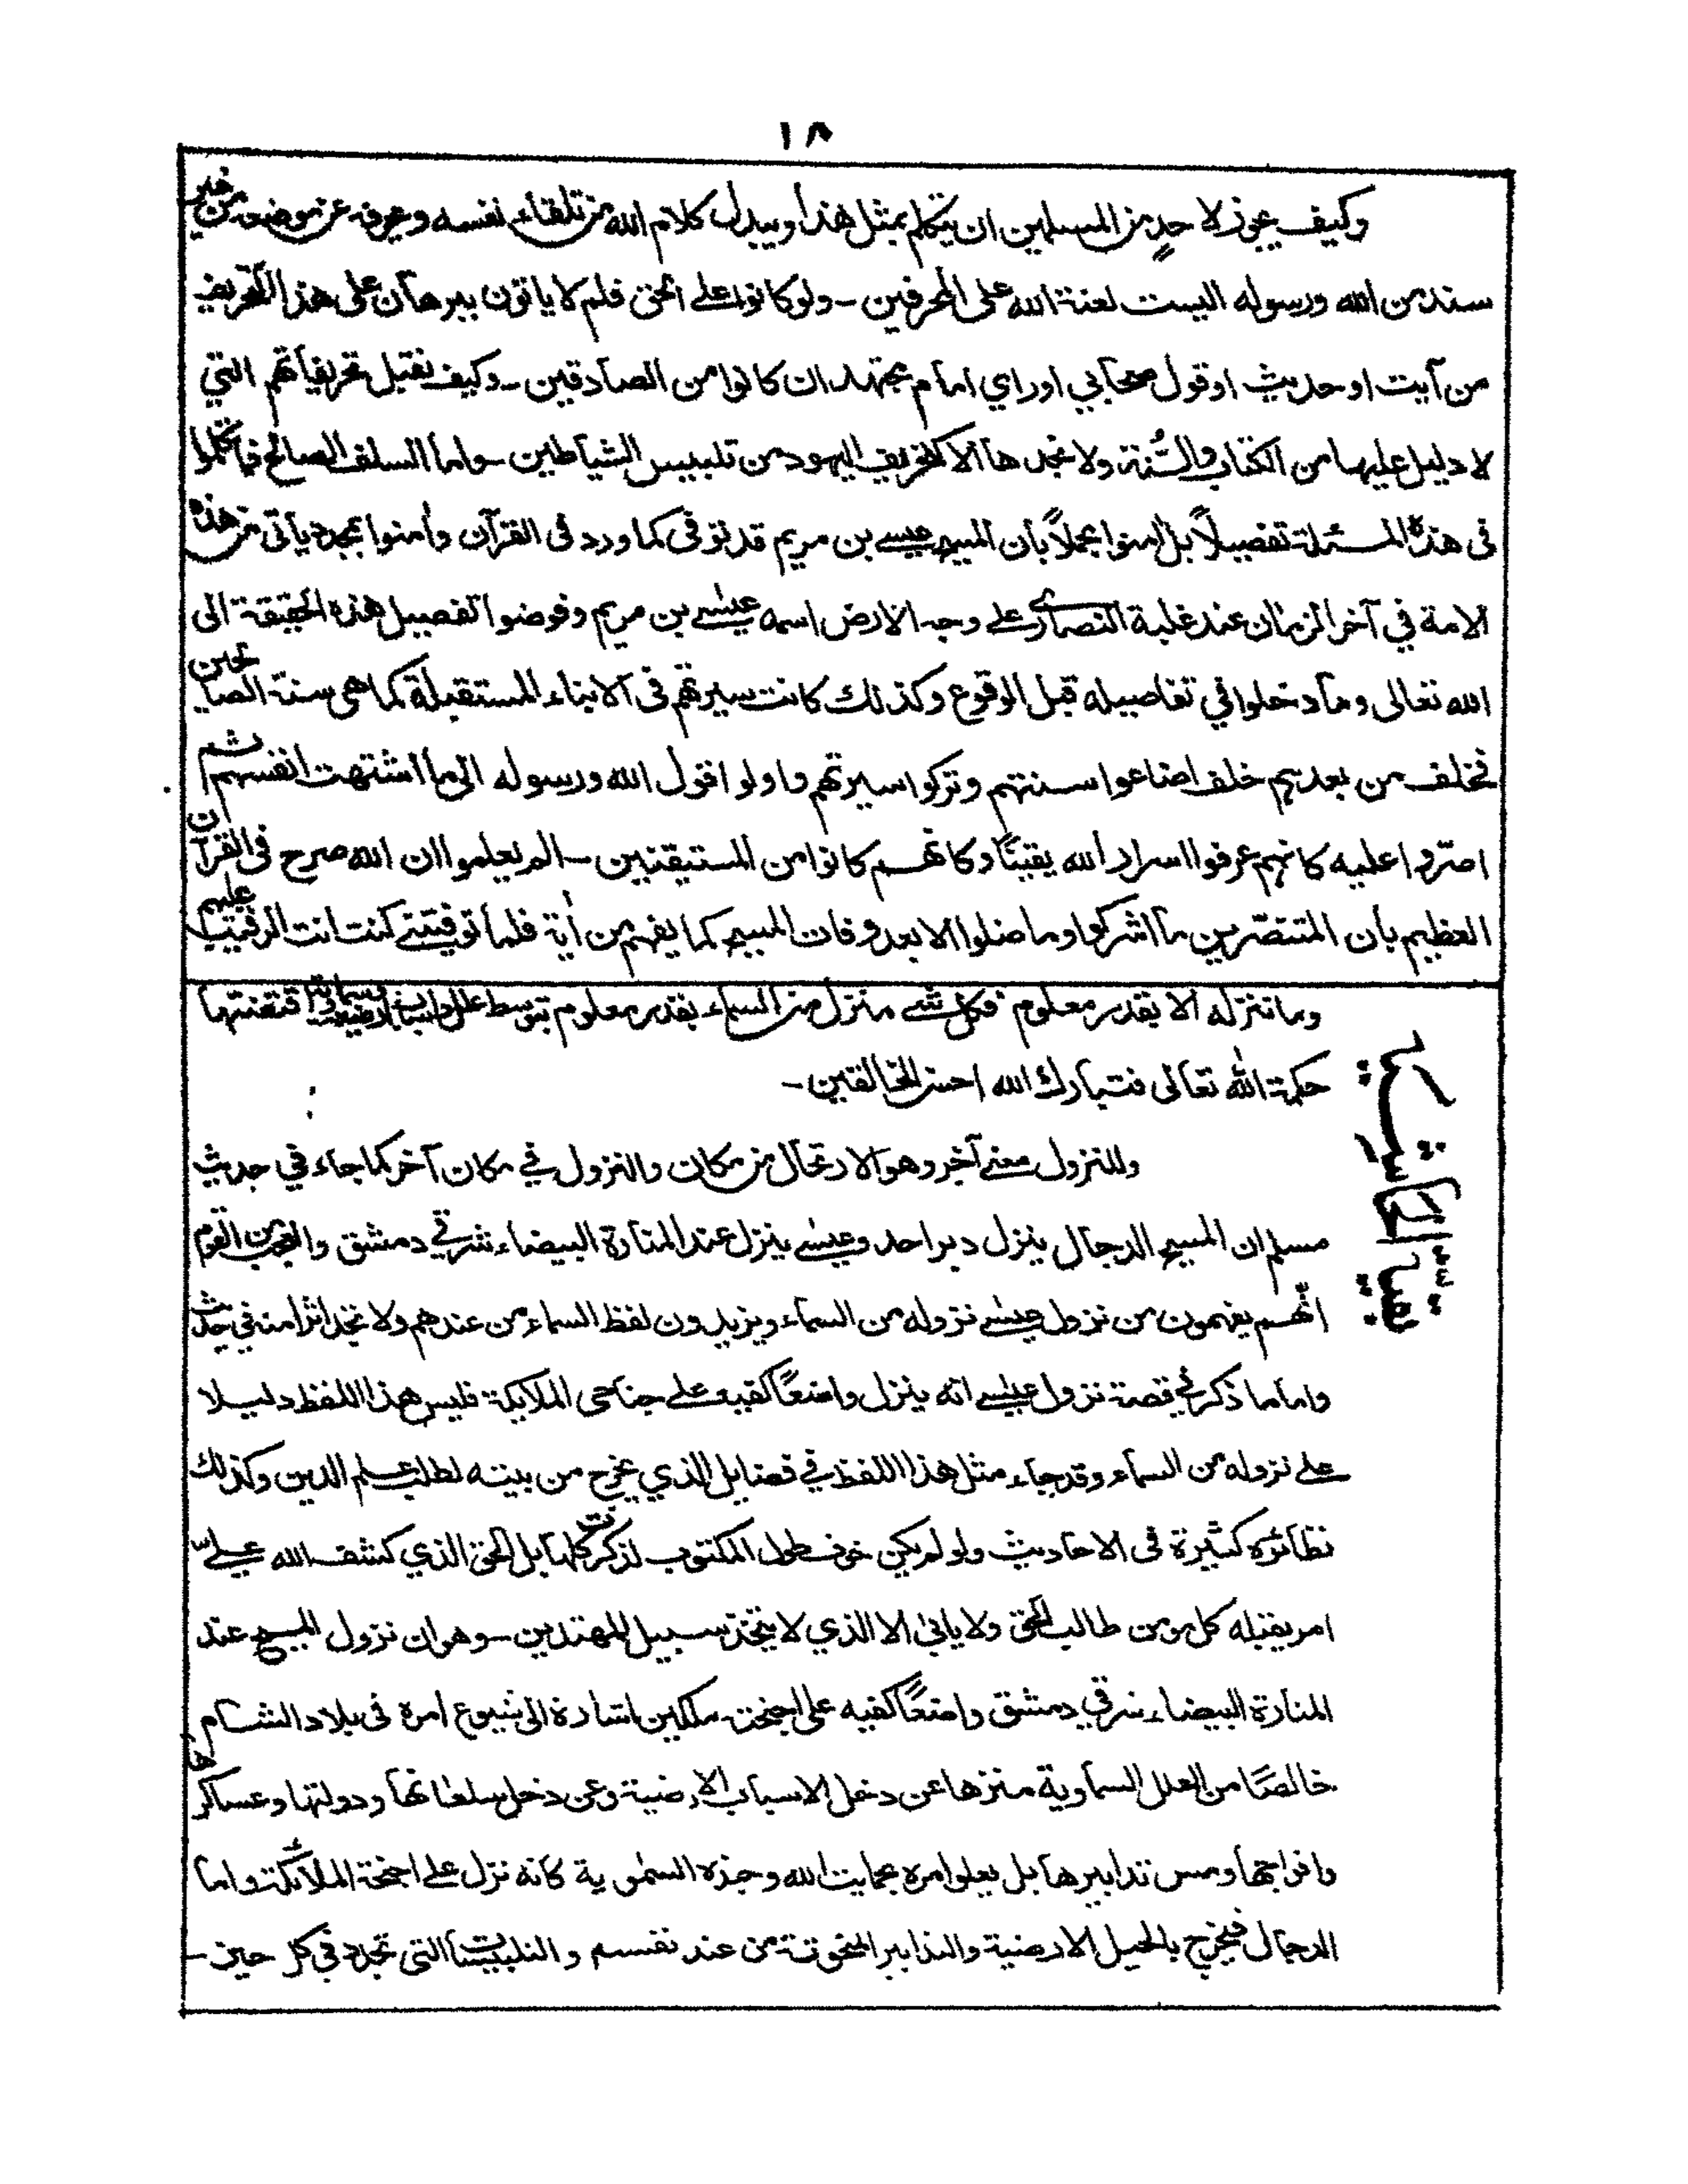 ١٨
وكيف يجوز لاحدٍ من المسلمين ان يتكلم بمثل هذا ويبدل كلام الله من تلقاء نفسه ويحرفه عن موضعه من غير
سند من الله ورسوله اليست لعنة الله على المحرفين - ولو كانوا على الحق فلم لا ياتون ببرهان على هذا التحريف
من آيت او حديث او قول صحابي او راي امام مجتهد ان كانوا من الصادقين - وكيف نقبل تحريفاتهم التي
لا دليل عليها من الكتاب والسُّنة ولا نجدها الا كتحريف اليهود من تلبيس الشياطين - واما السلف الصالح فما تكلموا
فى هذه المسئلة تفصيلاً بل آمنوا مجملاً بان المسيح عيسے بن مريم قد توفى كما ورد فى القرآن وآمنوا بمجدد ياتى من هذه
الامة في آخر الزمان عند غلبة النصارٰے علے وجه الارض اسمه عيسٰے بن مريم وفوضوا تفصيل هذه الحقيقة الى
الله تعالى وما دخلوا في تفاصيله قبل الوقوع وكذلك كانت سيرتهم فى الانباء المستقبلة كما هى سنة الصالحين
فخلف من بعدهم خلف اضاعوا سنتهم وتركوا سيرتهم واولوا قول الله ورسوله الى ما اشتهت انفسهم ثم
اصرّوا عليه كانهم عرفوا اسرار الله يقينًا وكانهم كانوا من المستيقنين - الم يعلموا ان الله صرح فى القرآن
العظيم بان المتنصّرين ما اشركوا وما ضلوا الا بعد وفات المسيح كما يفهم من آية فلما توفيتنے كنت انت الرقيب عليهم
وما ننزله الا بقدر معلوم فكل شے منزل من السماء بقدر معلوم بتوسط علل واسباب سماوية ارضية اقتضتها
حكمة الله تعالى فتبارك الله احسن الخالقين -
وللنزول معنے آخر وهو الارتحال من مكان والنزول في مكان آخر كما جاء في حديث
مسلم ان المسيح الدجال ينزل دبر احد وعيسٰے ينزل عند المنارة البيضاء شرقي دمشق والعجب من القوم
انّهم يفهمون من نزول عيسٰے نزوله من السماء ويزيدون لفظ السماء من عندهم ولا تجد اثرا منه في حديث
واما ما ذكر في قصة نزول عيسٰے انه ينزل واضعًا كفيه علے جناحى الملائكة فليس هذا اللفظ دليلا
علے نزوله من السماء وقد جاء مثل هذا اللفظ في فضايل الذي يخرج من بيته لطلب علم الدين وكذلك
نظائره كثيرة فى الاحاديث ولو لم يكن خوف طول المكتوب لذكرت كلها بل الحق الذي كشف الله علےّ
امر يقبله كل مومن طالب الحق ولا يابىٰ الا الذي لا يتخذ سبيل المهتدين - وهو ان نزول المسيح عند
المنارة البيضاء شرقي دمشق واضعًا كفيه على اجنحة ملكين اشارة الى شيوع امره فى بلاد الشام
خالصًا من العلل السماوية منزها عن دخل الاسباب الارضية وعن دخل سلطانها ودولتها وعساكرها
وافواجها ومس تدابيرها بل يعلوا امره بحمايت الله وجنده السمٰوية كانه نزل علے اجنحة الملائكة واما
الدجال فيخرج بالحيل الارضية والتدابير المنحوتة من عند نفسه والتلبيسات التى تجدد فى كل حين -